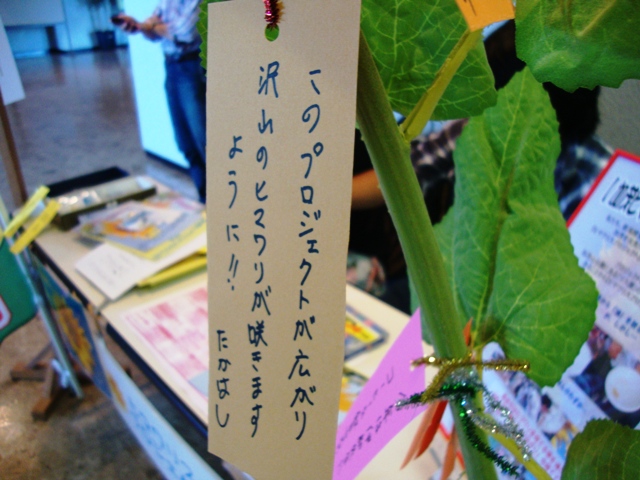 このプロジェクトが広がり
沢山のヒマワリが咲きます
ように!!
たかはし